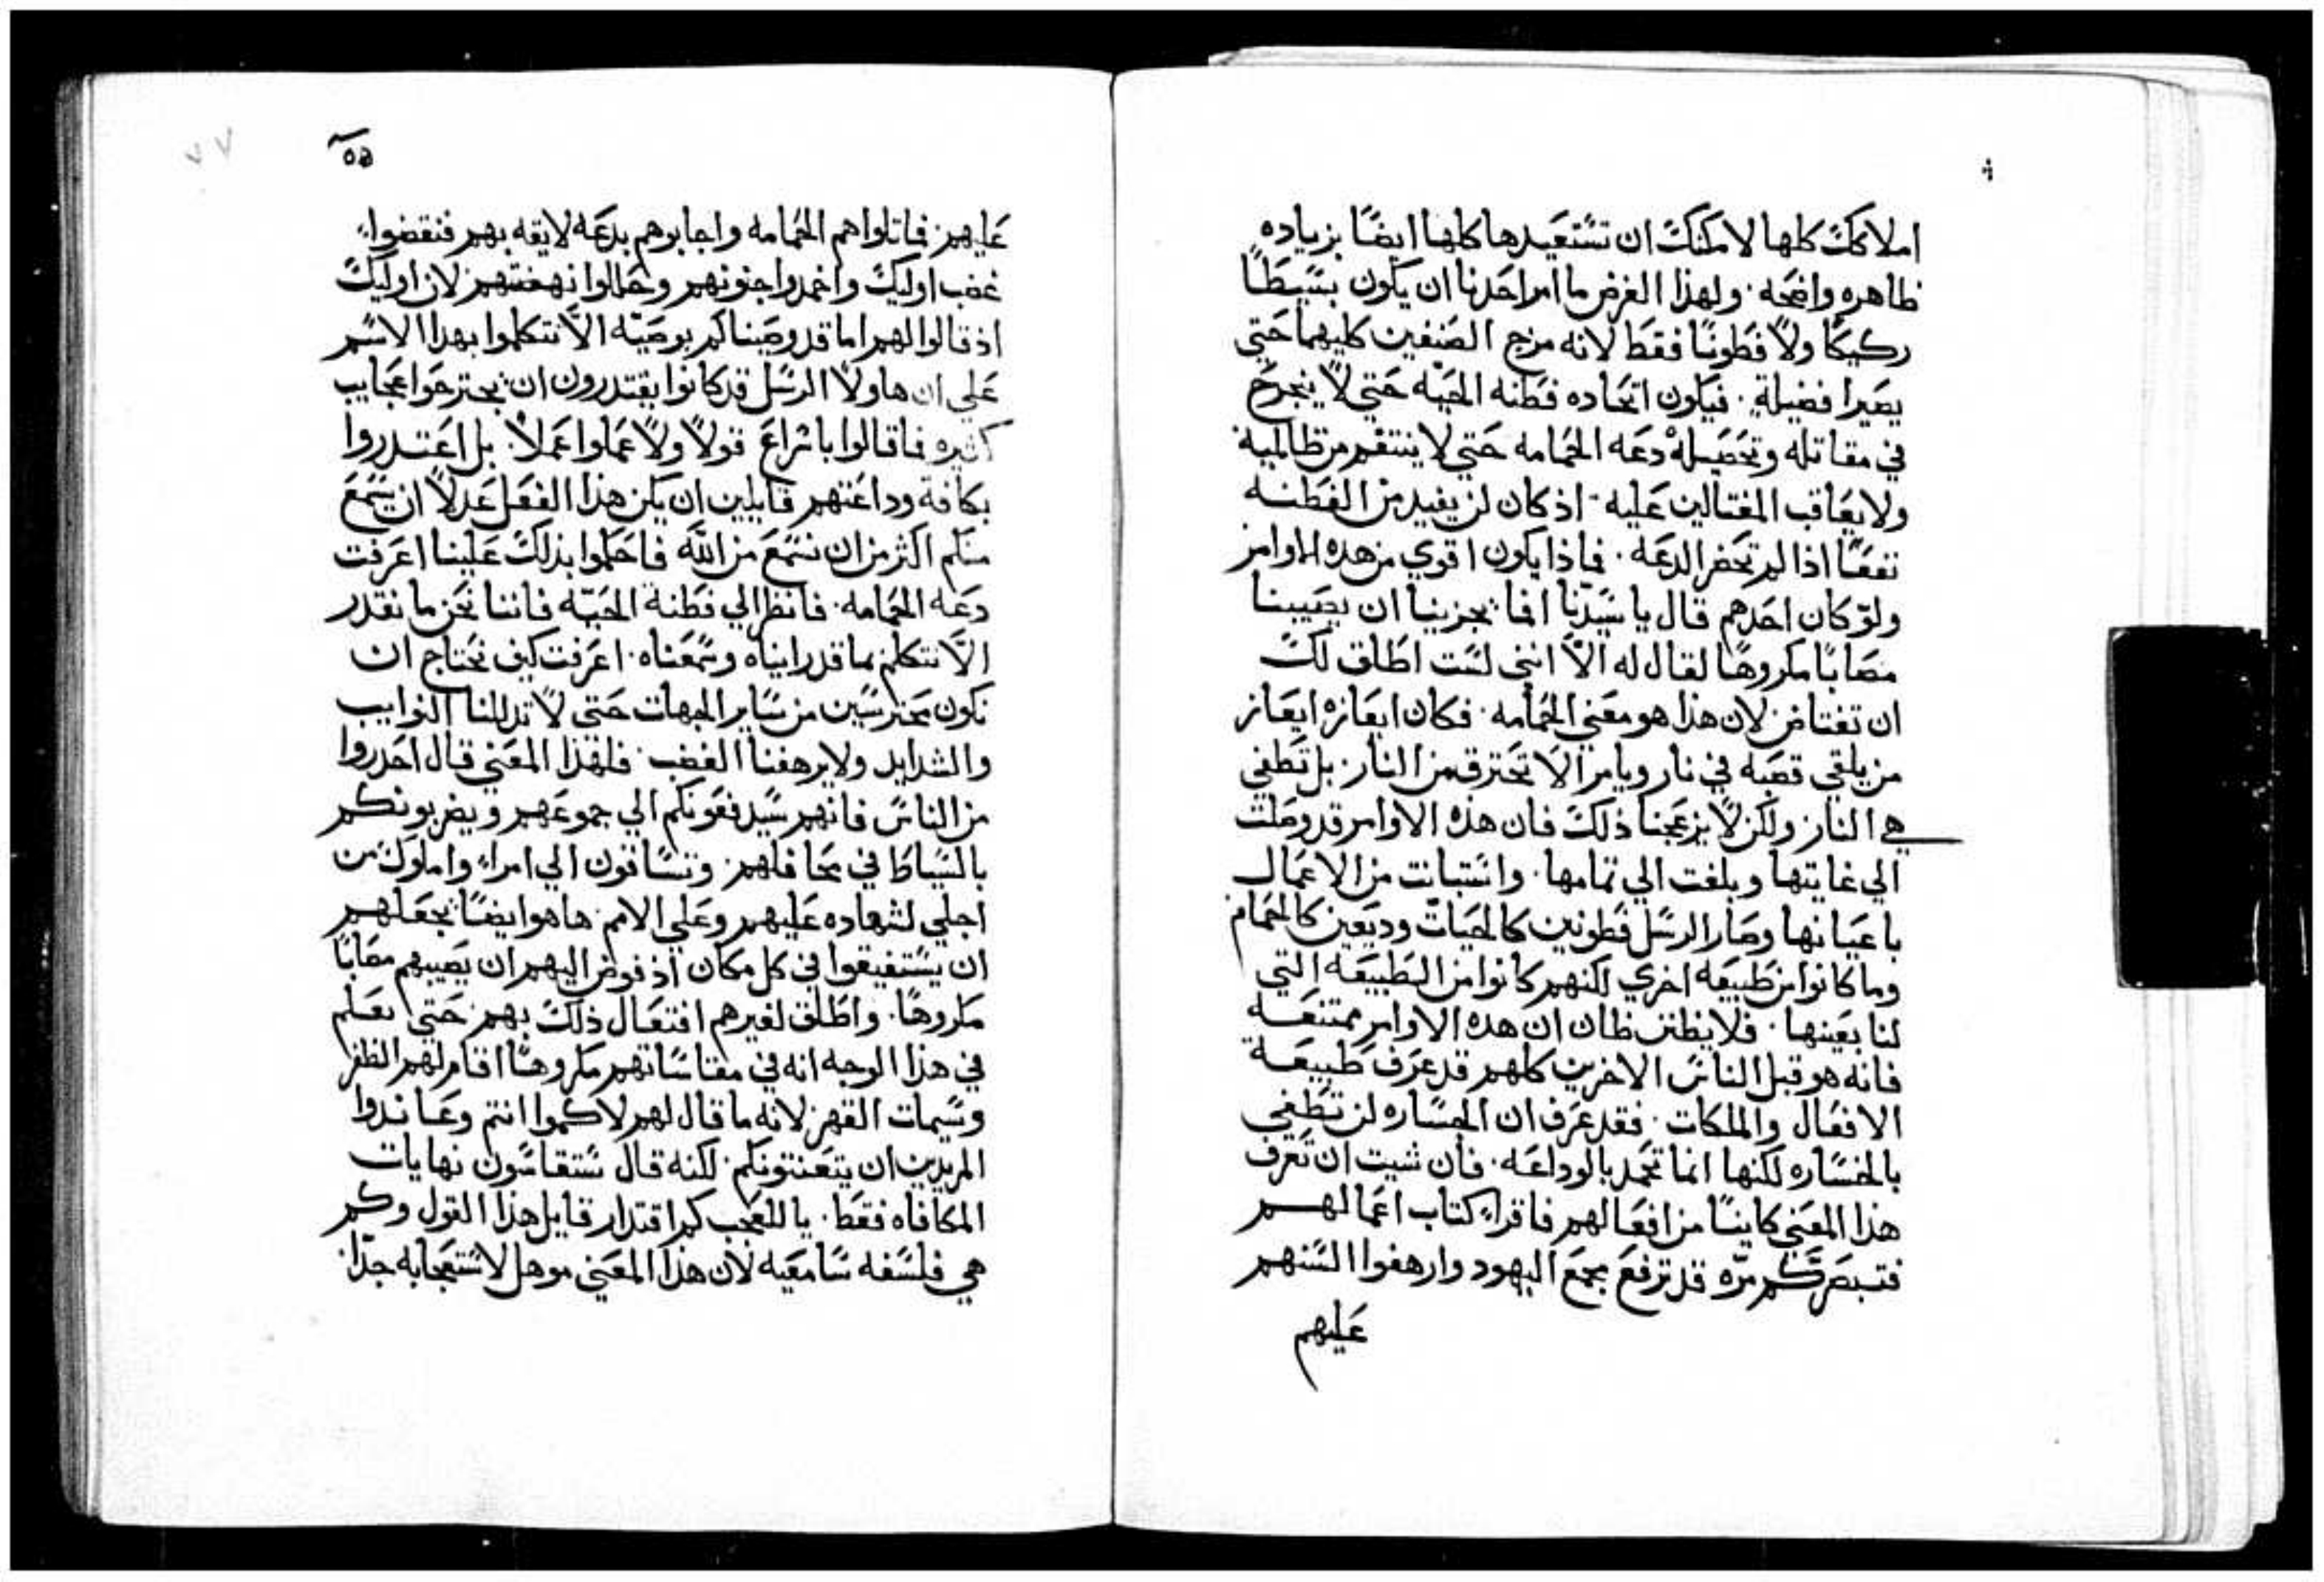 املاكك كلها لامكنك ان تستعيدها كلها ايضًا بزياده
ظاهره واضحه ولهذا الغرض ما امر احدنا ان يكون بسيطًا
ركيكًا ولا فطونًا فقط لانه مزج الصنفين كليهما حتي
يصيرا فضيلةٍ فيكون اتحاده فطنه الحيّه حتي لا ينجرح
في مقاتله وتحصيله دعه الحمامه حتي لا ينتقم من ظالميه
ولا يعاقب المغتالين عليه اذ كان لن يفيد من الفطنه
نفعًا اذا لم تحضر الدعه فماذا يكون اقوي من هذه الاوامر
ولو كان احدهم قال يا سيدنا افما يجزينا ان يصيبنا
مصابًا مكروهًا لقال له الا انني لست اطلق لك
ان تغتاض لان هذا هو معني الحمامه فكان ايعازه ايعاز
من يلقي قصبه في نار ويامر الا تحترق من النار بل تطفي
هي النار ولكن لا يزعجنا ذلك فان هذه الاوامر قد وصلت
الي غايتها وبلغت الي تمامها واستبانت من الاعمال
باعيانها وصار الرسل فطونين كالحيات وديعين كالحمام
وما كانوا من طبيعه اخري لكنهم كانوا من الطبيعه التي
لنا بعينها فلا يظنن ظان ان هذه الاوامر ممتنعه
فانه هو قبل الناس الاخرين كلهم قد عرف طبيعة
الافعال والملكات فقد عرف ان الجساره لن تطفي
بالجساره لكنها انما تخمد بالوداعه فان شيت ان تعرف
هذا المعني كاينًا من افعالهم فاقراء كتاب اعمالهم
فتبصر كم مرّه قد ترفع مجمع اليهود وارهفوا السنهم
عليهم
٥٥
٧٧
عليهم فماتلوا هم الحمامه واجابوهم بدعه لايقه بهم فنقضوا
غضب اوليك واخمدوا جنونهم وحالوا نهضتهم لان اوليك
اذ قالوا لهم اما قد وصيناكم بوصيّه الا تتكلموا بهذا الاسم
علي ان هاولا الرسل قد كانوا يقتدرون ان يجترحوا عجايب
كثيره فما قالوا باتراع قولاً ولا عملوا عملاً بل اعتدروا
بكافة وداعتهم قايلين ان يكن هذا الفعل عدلاً ان نسمع
منكم اكثر من ان نسمع من الله فاحكموا بذلك علينا اعرفت
دعه الحمامه فانظر الي فطنة الحيّه فاننا نحن ما نقدر
الا نتكلم بما قد رايناه وسمعناه اعرفت كيف نحتاج ان
نكون محترسين من ساير الجهات حتي لا تدللنا النوايب
والشدايد ولا يرهفنا الغضب فلهذا المعني قال احدروا
من الناس فانهم سيدفعونكم الي جموعهم ويضربونكم
بالسياط في محافلهم وتساقون الي امراء واملوك من
اجلي لشهاده عليهم وعلي الامم هاهو ايضًا يجعلهم
ان يستفيقوا في كل مكان اذ فوض اليهم ان يصيبهم مصابًا
مكروهًا واطلق لغيرهم افتعال ذلك بهم حتي تعلم
في هذا الوجه انه في مقاساتهم مكروهًا اقام لهم الظفر
وسيمات القهر لانه ما قال لهم لاكموا انتم وعاندوا
المريدين ان يتعنتونكم لكنه قال ستقاسون نهايات
المكافاه فقط يا للعجب كم اقتدار قايل هذا القول وكم
هي فلسفه سامعيه لان هذا المعني موهل لاستعجابه جدًا